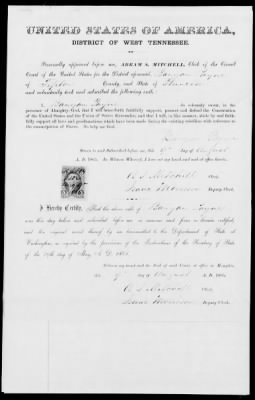 UNITED STATES OF AMERICA,
DISTRICT OF WEST TENNESSEE.
Personally appeared before me, ABRAM S. MITCHELL, Clerk of the Circuit
Court of the United States for the District aforesaid,
of County and State of
and voluntarily took and subscribed the following oath:
I, do solemnly swear, in the
presence of Almighty God, that I will henceforth faithfully support, protect and defend the Constitution
of the United States and the Union of States thereunder, and that I will, in like manner, abide by and faith-
fully support all laws and proclamations which have been made during the existing rebellion with reference to
the emancipation of Slaves. So help me God.
Sworn to and Subscribed before me, this 9th day of August
A. D. 1865. In Witness Whereof, I have set my hand and seal of office hereto.
A S Mitchell Clerk,
Deputy Clerk.
I Hereby Certify, That the above oath of
was this day taken and subscribed before me in manner and form as herein certified,
and the original record thereof by me transmitted to the Department of State at
Washington as required by the provisions of the Instructions of the Secretary of State
of the 29th day of May A. D. 1865.
Witness my hand and the Seal of said Court, at office in Memphis,
this 9th day of August A. D. 1865.
A S Mitchell Clerk.
Deputy Clerk.